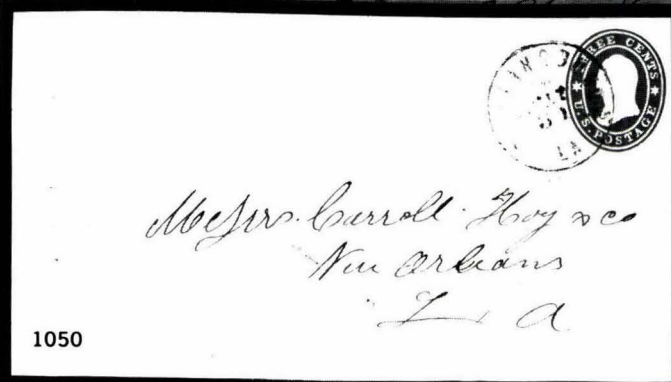 THREE CENTS
U.S. POSTAGE
LA
Messrs. Carroll. Hoy & co
New Orleans
La
1050